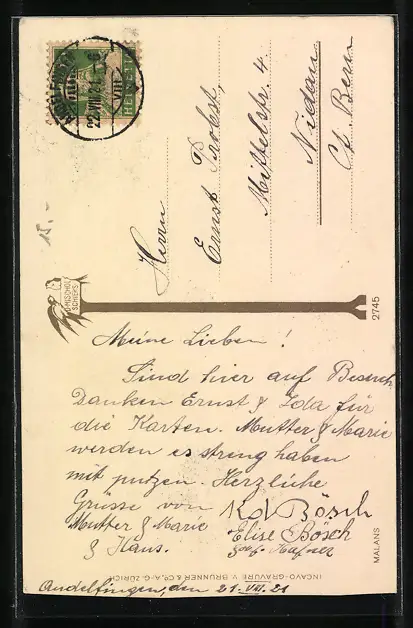 Herrn
Ernst Probst,
Mittelstr. 4
Nidau
Ct. Bern
15.-
22.VIII.21
HELVETIA
J. MISCHOL
SCHIERS
2745
Meine Lieben!
Sind hier auf Besuch
Danken Ernst & Ida für
die Karten. Mutter & Marie
werden es streng haben
mit putzen. Herzliche
Grüsse von
Mutter & Marie
& Hans.
Bösch
Elise Bösch
geb. Hafner
MALANS
INCAVO-GRAVURE V. BRUNNER & CO. A.-G. ZÜRICH
Andelfingen, den 21. VIII. 21